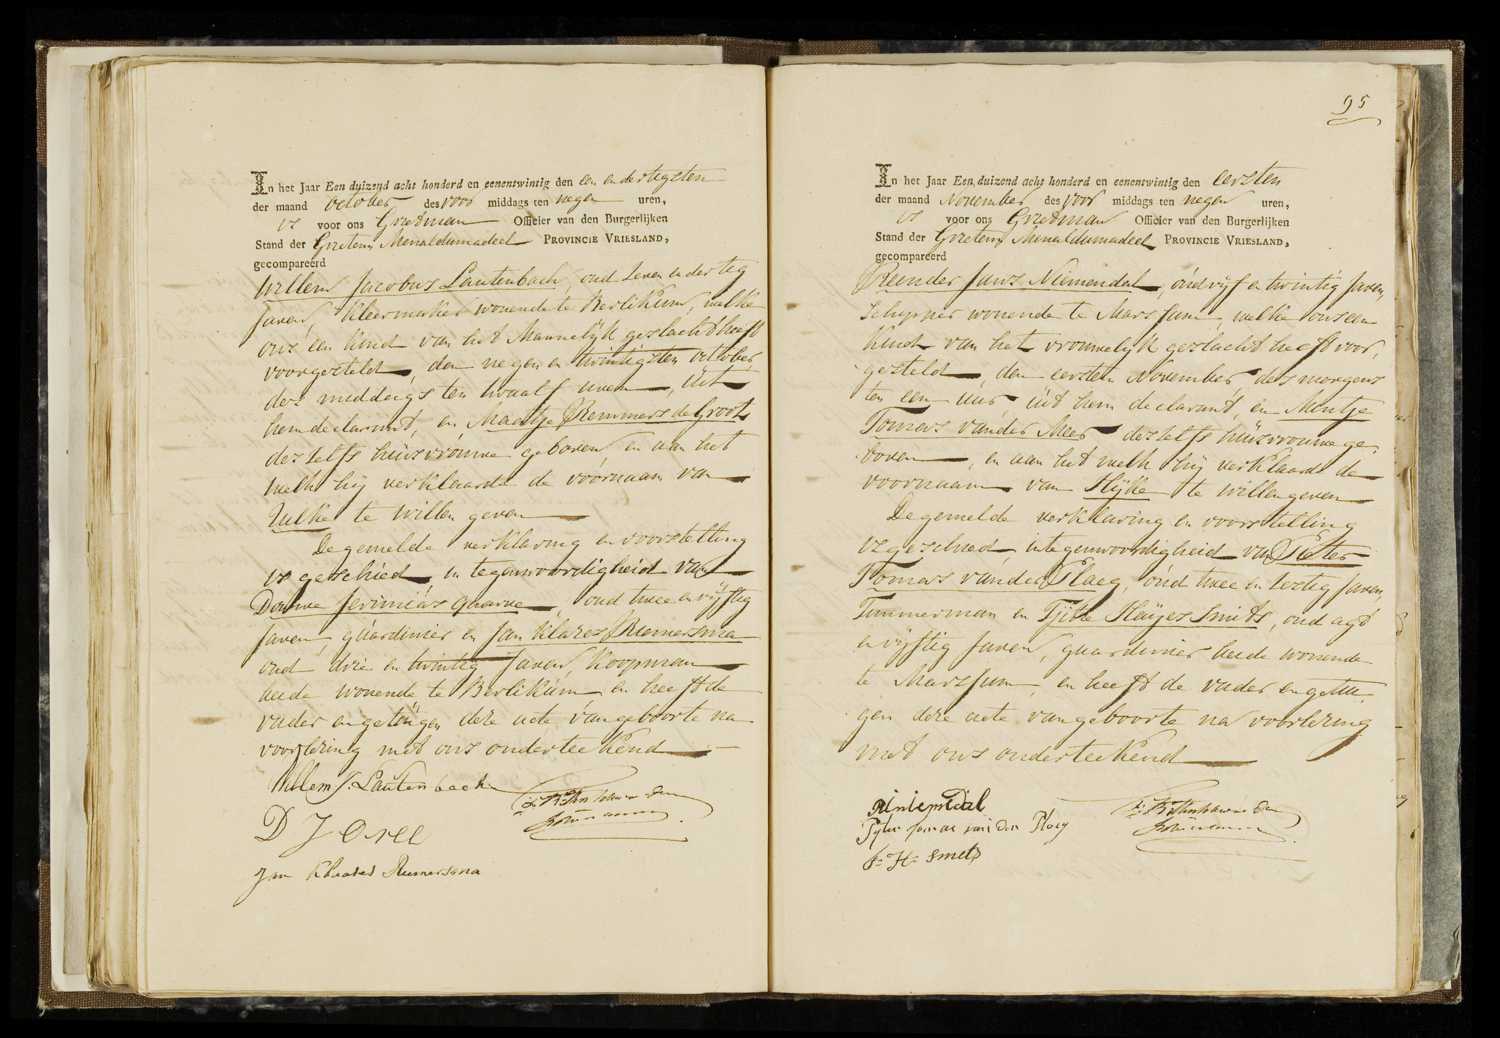 In het Jaar Een duizend acht honderd en eenentwintig den een en dertigsten
der maand October des voor middags ten negen uren,
is voor ons Grietman Officier van den Burgerlijken
Stand der Grietenij Menaldumadeel PROVINCIE VRIESLAND,
gecompareerd
Willem Jacobus Lautenbach, oud zeven en dertig
Jaren, kleermaker wonende te Berlikum, welke
ons een kind van het Mannelijk geslacht heeft
voorgesteld, den negen en twintigsten October
des middags ten twaalf uren, uit
hem declarant, en Maatje Remmers de Groot
deszelfs huisvrouwe geboren en aan het
welk hij verklaarde de voornaam van
Julke te willen geven
De gemelde verklaring en voorstelling
is geschied in tegenwoordigheid van
Douwe Jerimias oud twee en vijftig
Jaren, guardinier en Jan Klazes Riemersma
oud drie en twintig Jaren koopman
beide wonende te Berlikum en heeft de
vader en getuigen deze acte van geboorte na
voorlezing met ons onderteekend
Willem J. Lautenbach
D J
Jan Klaases Riemersma
95
In het Jaar Een duizend acht honderd en eenentwintig den eersten
der maand November des voor middags ten negen uren,
is voor ons Grietman Officier van den Burgerlijken
Stand der Grietenij Menaldumadeel PROVINCIE VRIESLAND,
gecompareerd
Reinder Jans Niemendal, oud vijf en twintig Jaren,
Schipper wonende te Marssum, welke ons een
kind van het vrouwelijk geslacht heeft voor,
gesteld, den eersten November des morgens
ten een uur, uit hem declarant, en Mintje
Tomas van der Meer deszelfs huisvrouwe ge
boren, en aan het welk hij verklaarde de
voornaam van Hijke te willen geven
De gemelde verklaring en voorstelling
is geschied in tegenwoordigheid van Piter
Tomas van der Plaeg, oud twee en zestig Jaren,
Timmerman en Tjibbe Haijes Smits, oud agt
en vijftig Jaren, guardinier beide wonende
te Marssum, en heeft de vader en getui
gen deze acte van geboorte na voorlezing
met ons onderteekend
R niemendal
Pyter tomas van der Ploeg
H Smets